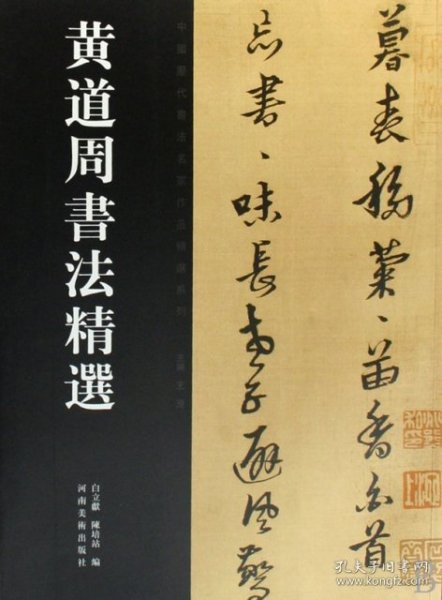 黄道周書法精選
中國歷代書法名家作品精選系列
白立獻 陳培站 編
河南美術出版社
暮春移藥、苗香白首
忘書、味長子避風驚
孔夫子旧书网
www.kongfz.com